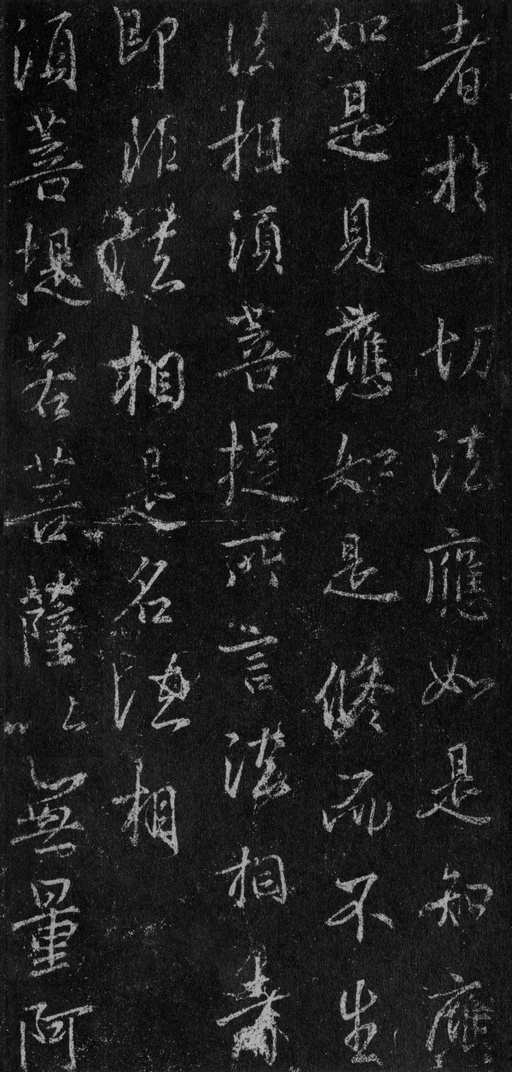 者於一切法應如是知應
如是見應如是修而不生
法相須菩提所言法相者
即非法相是名法相
須菩提若菩薩以無量阿